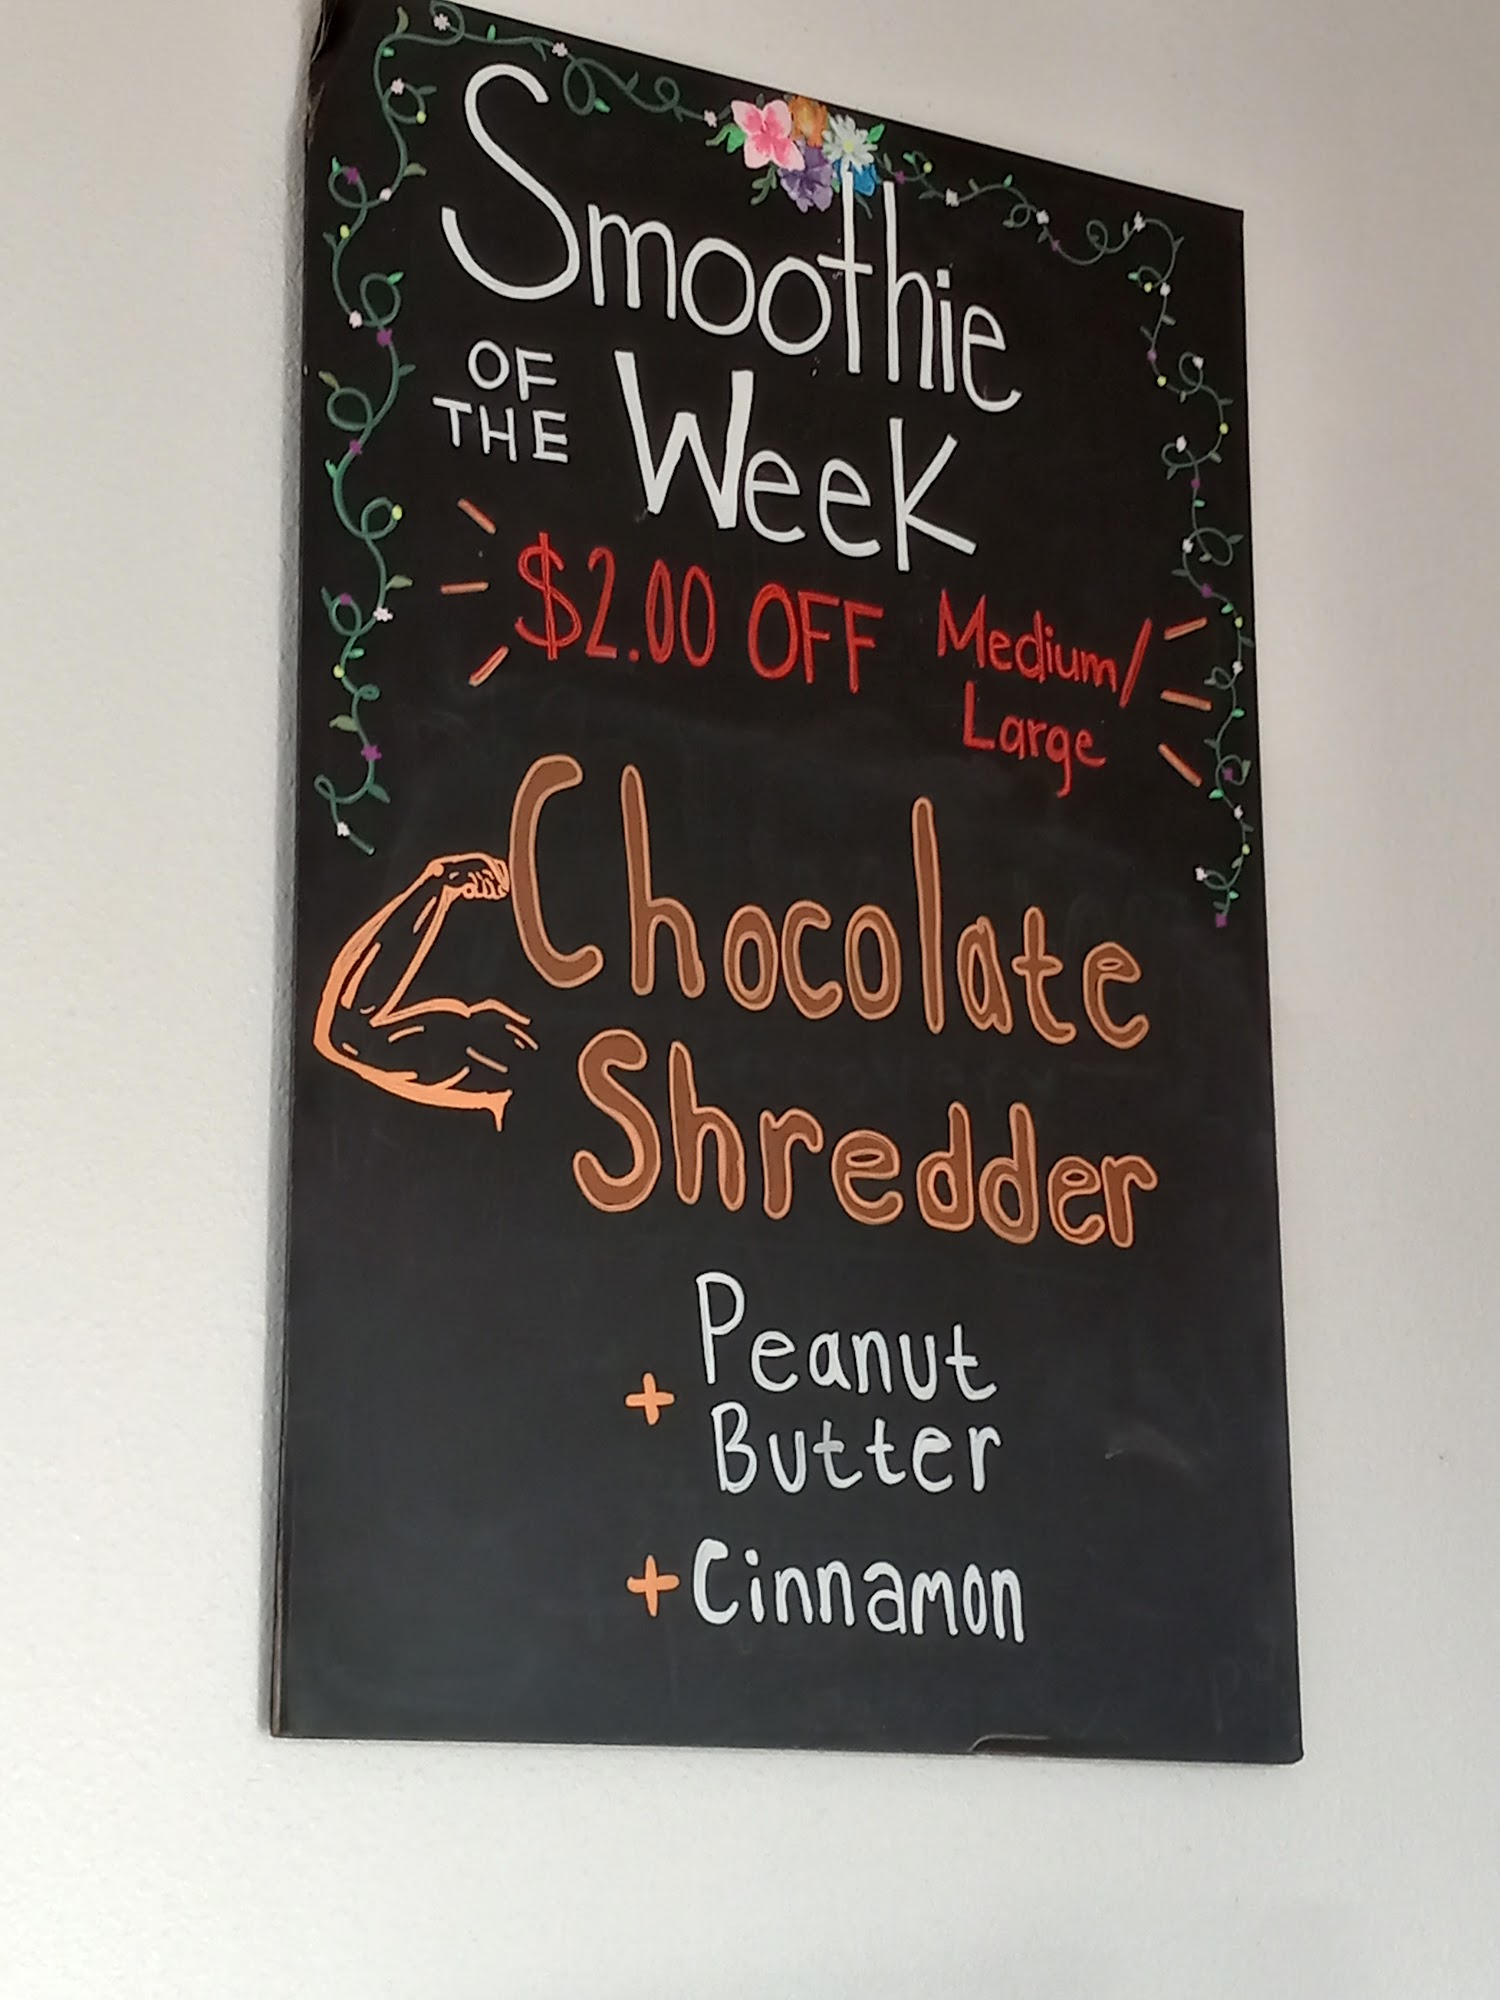 Smoothie
OF THE Week
$2.00 OFF Medium/
Large
Chocolate
Shredder
+ Peanut
Butter
+ Cinnamon